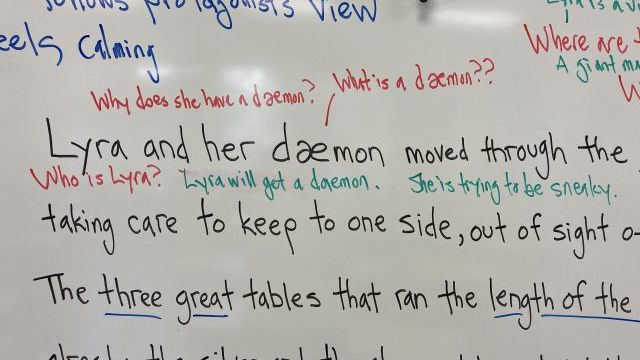 follows protagonists view
eels calming
Where are
A giant
Why does she have a dæmon?
What is a dæmon??
Lyra and her dæmon moved through the
Who is Lyra? Lyra will get a daemon. She is trying to be sneaky.
taking care to keep to one side, out of sight o
The three great tables that ran the length of the